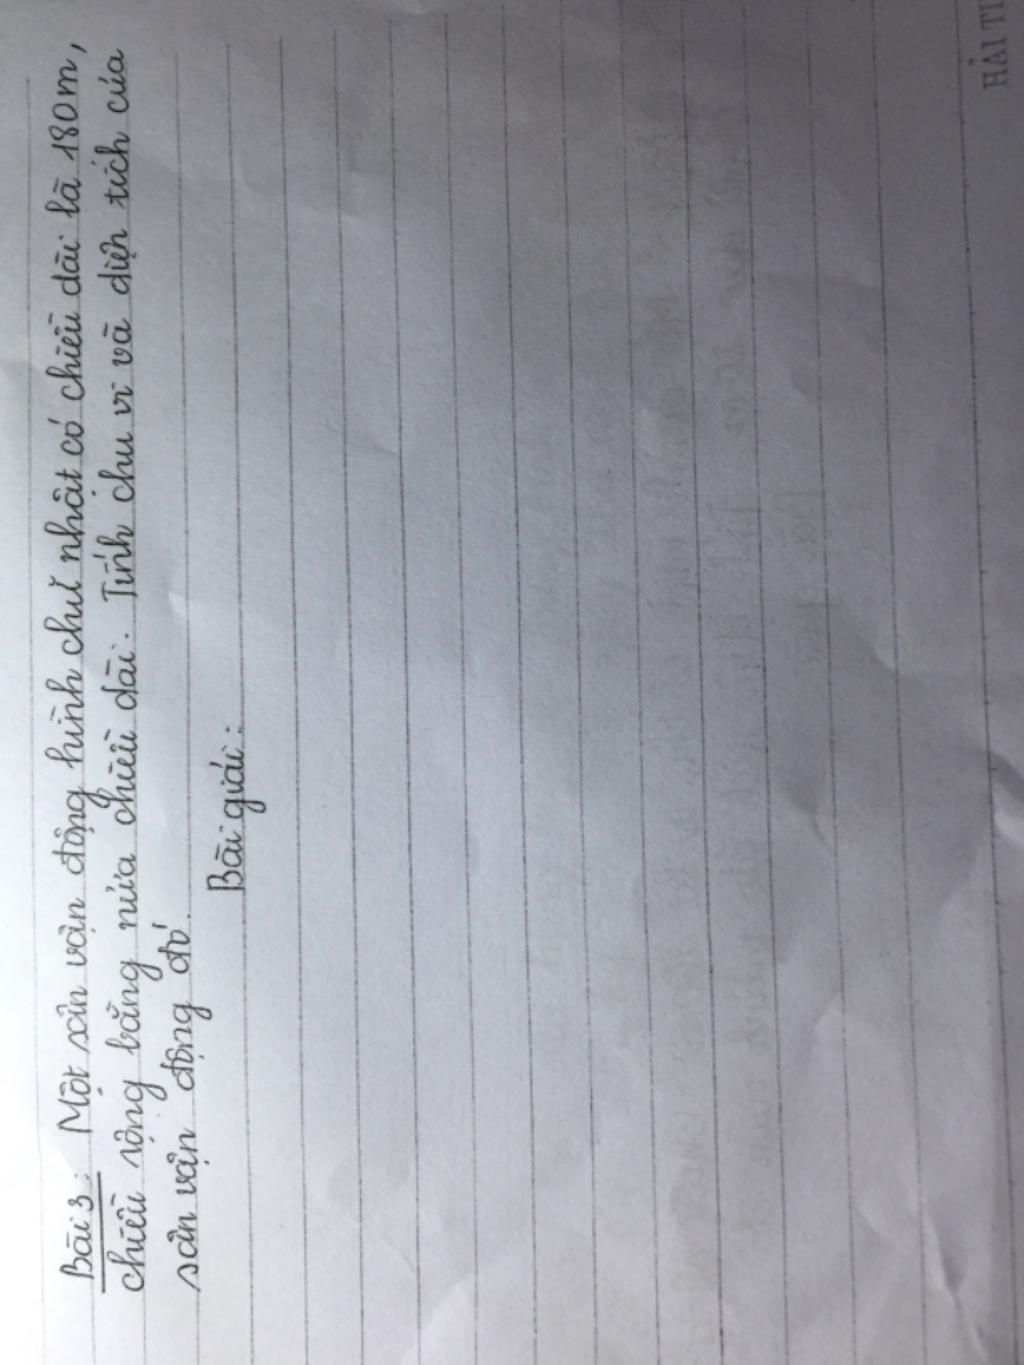 Bài 3: Một sân vận động hình chữ nhật có chiều dài là 180m,
chiều rộng bằng nửa chiều dài. Tính chu vi và diện tích của
sân vận động đó.
Bài giải:
HẢI TI